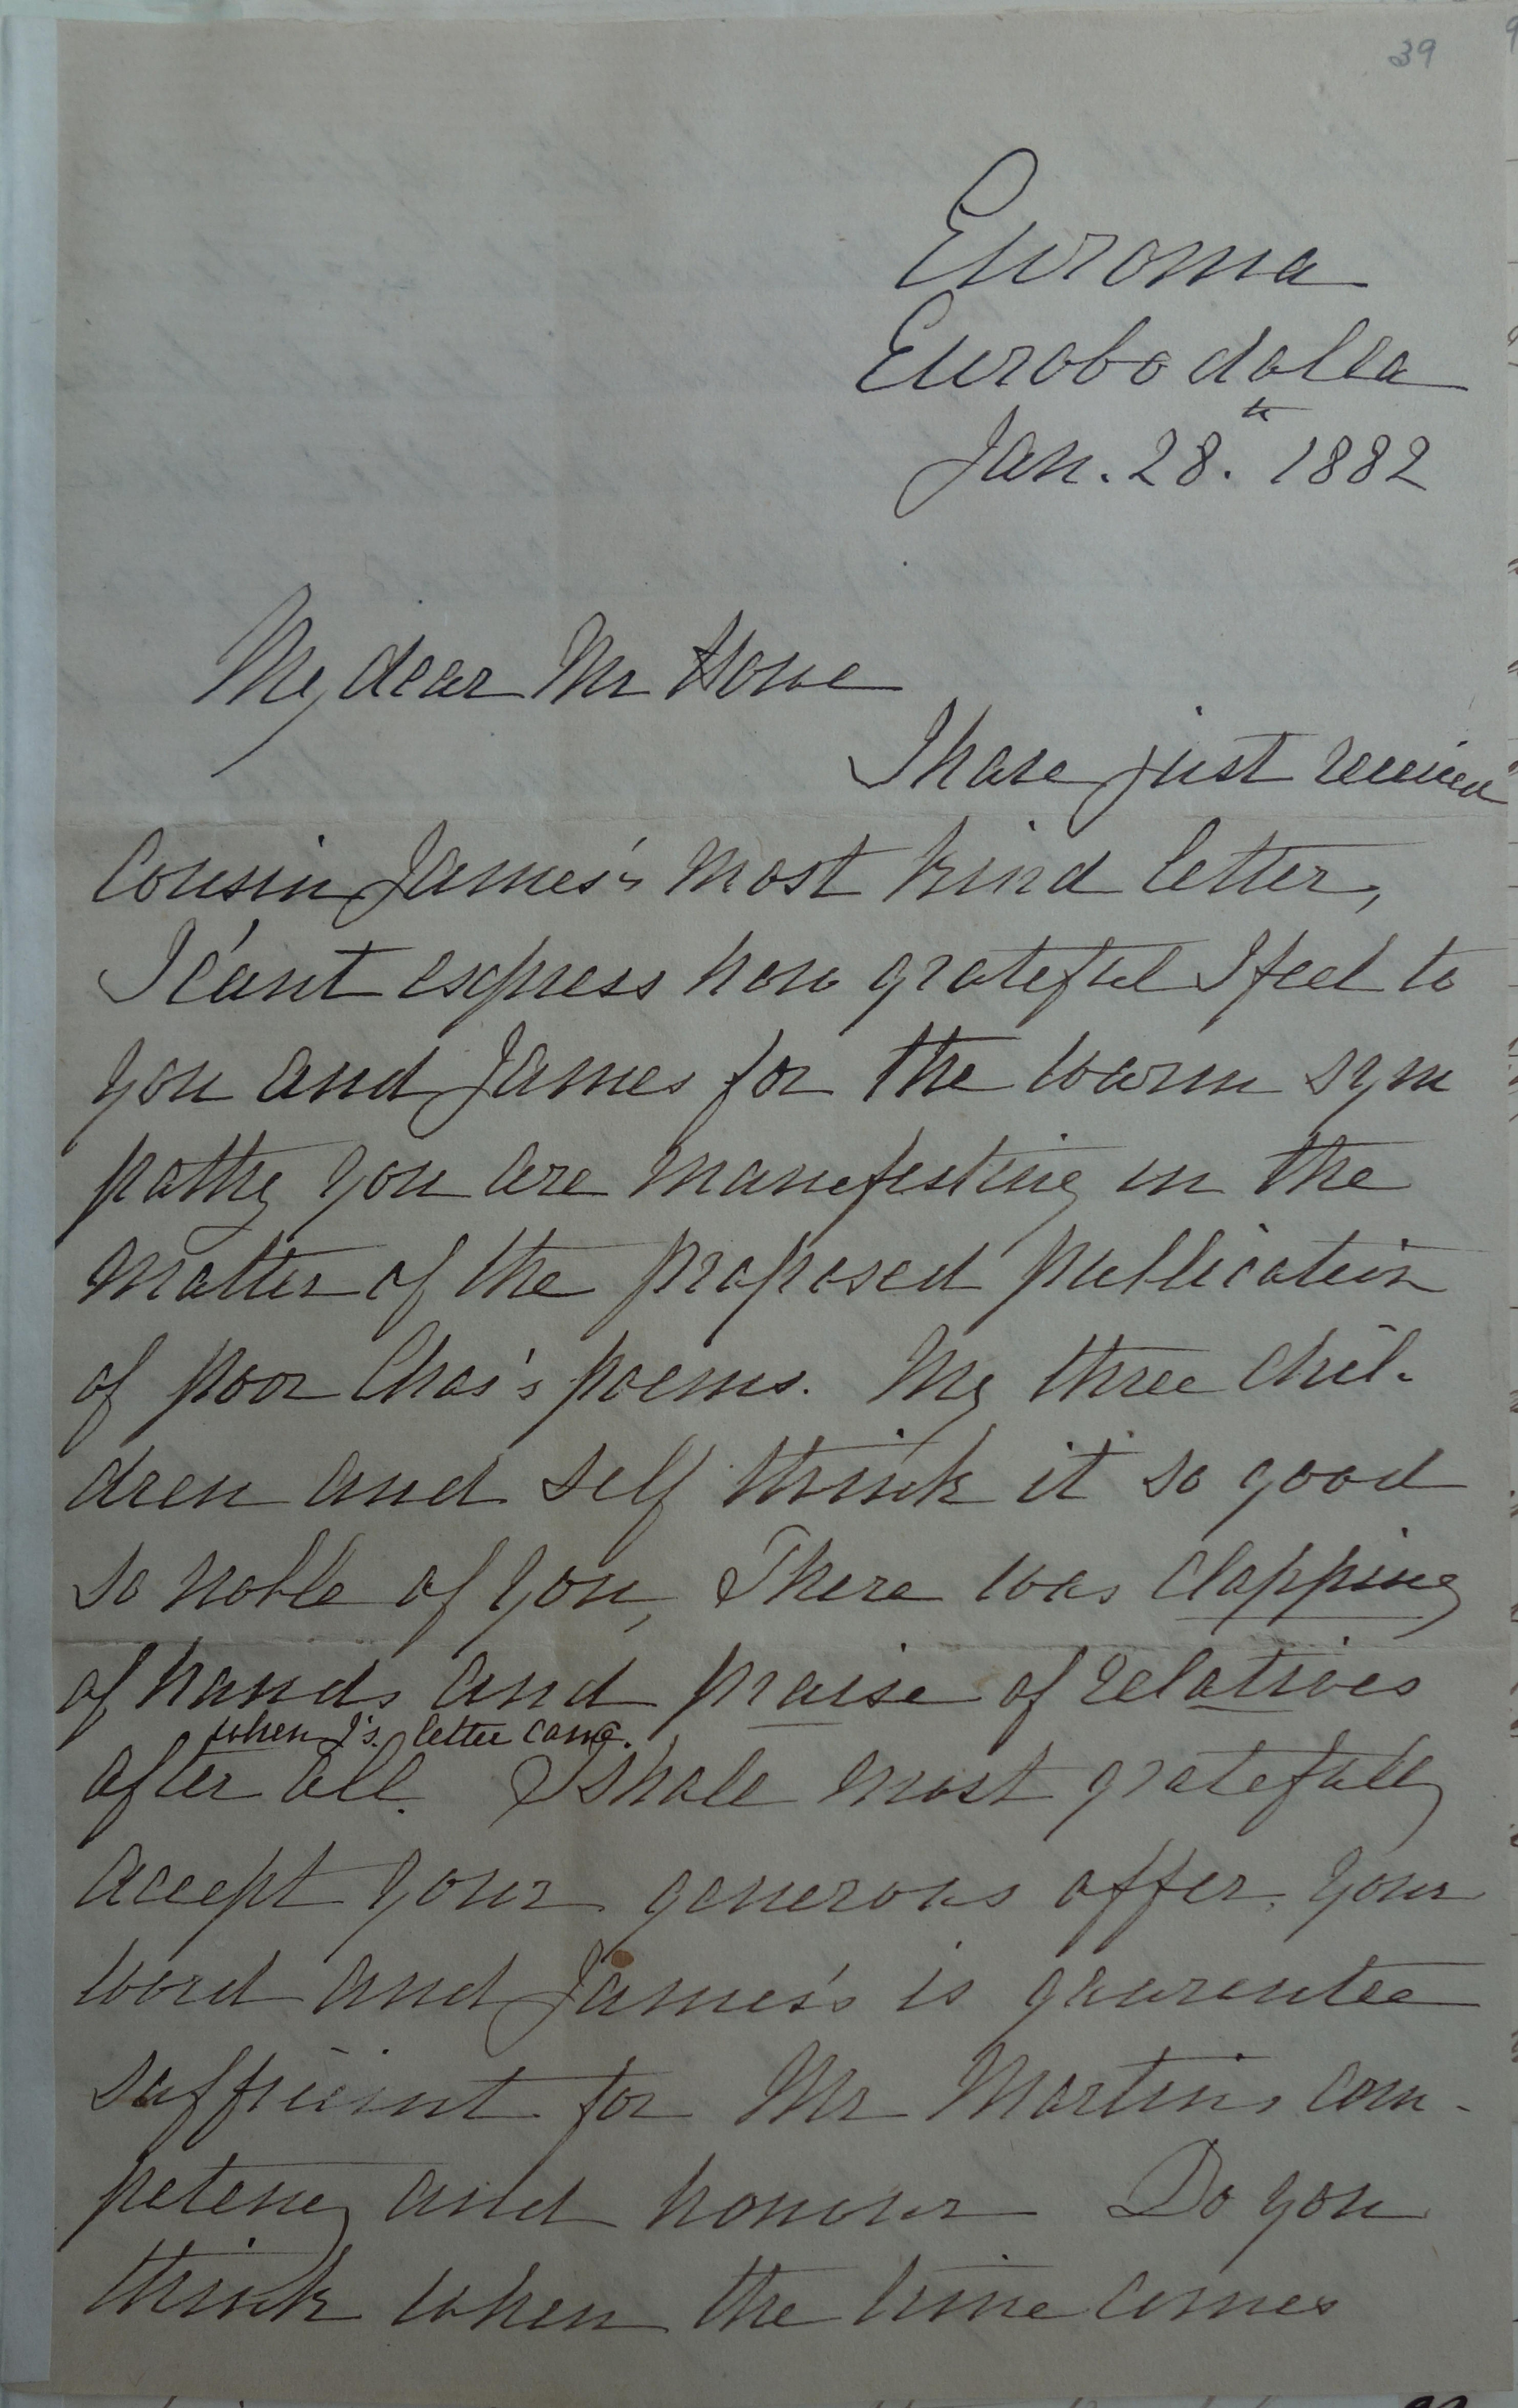 39
Euroma
Eurobodalla
Jan. 28.th 1882
My dear Mr Howe
I have just received
Cousin James's most kind letter,
I ca'nt express how grateful I feel to
you and James for the warm sym
pathy you are manifesting in the
matter of the proposed publication
of poor Chas's poems. My three chil-
dren and self think it so good
so noble of you, There was clapping
of hands and praise of relatives
when J's. letter came.
after all. I shall most gratefully
accept your generous offer, your
word and James's is guarentee
sufficient for Mr Martin's com-
petency and honour Do you
think when the time comes